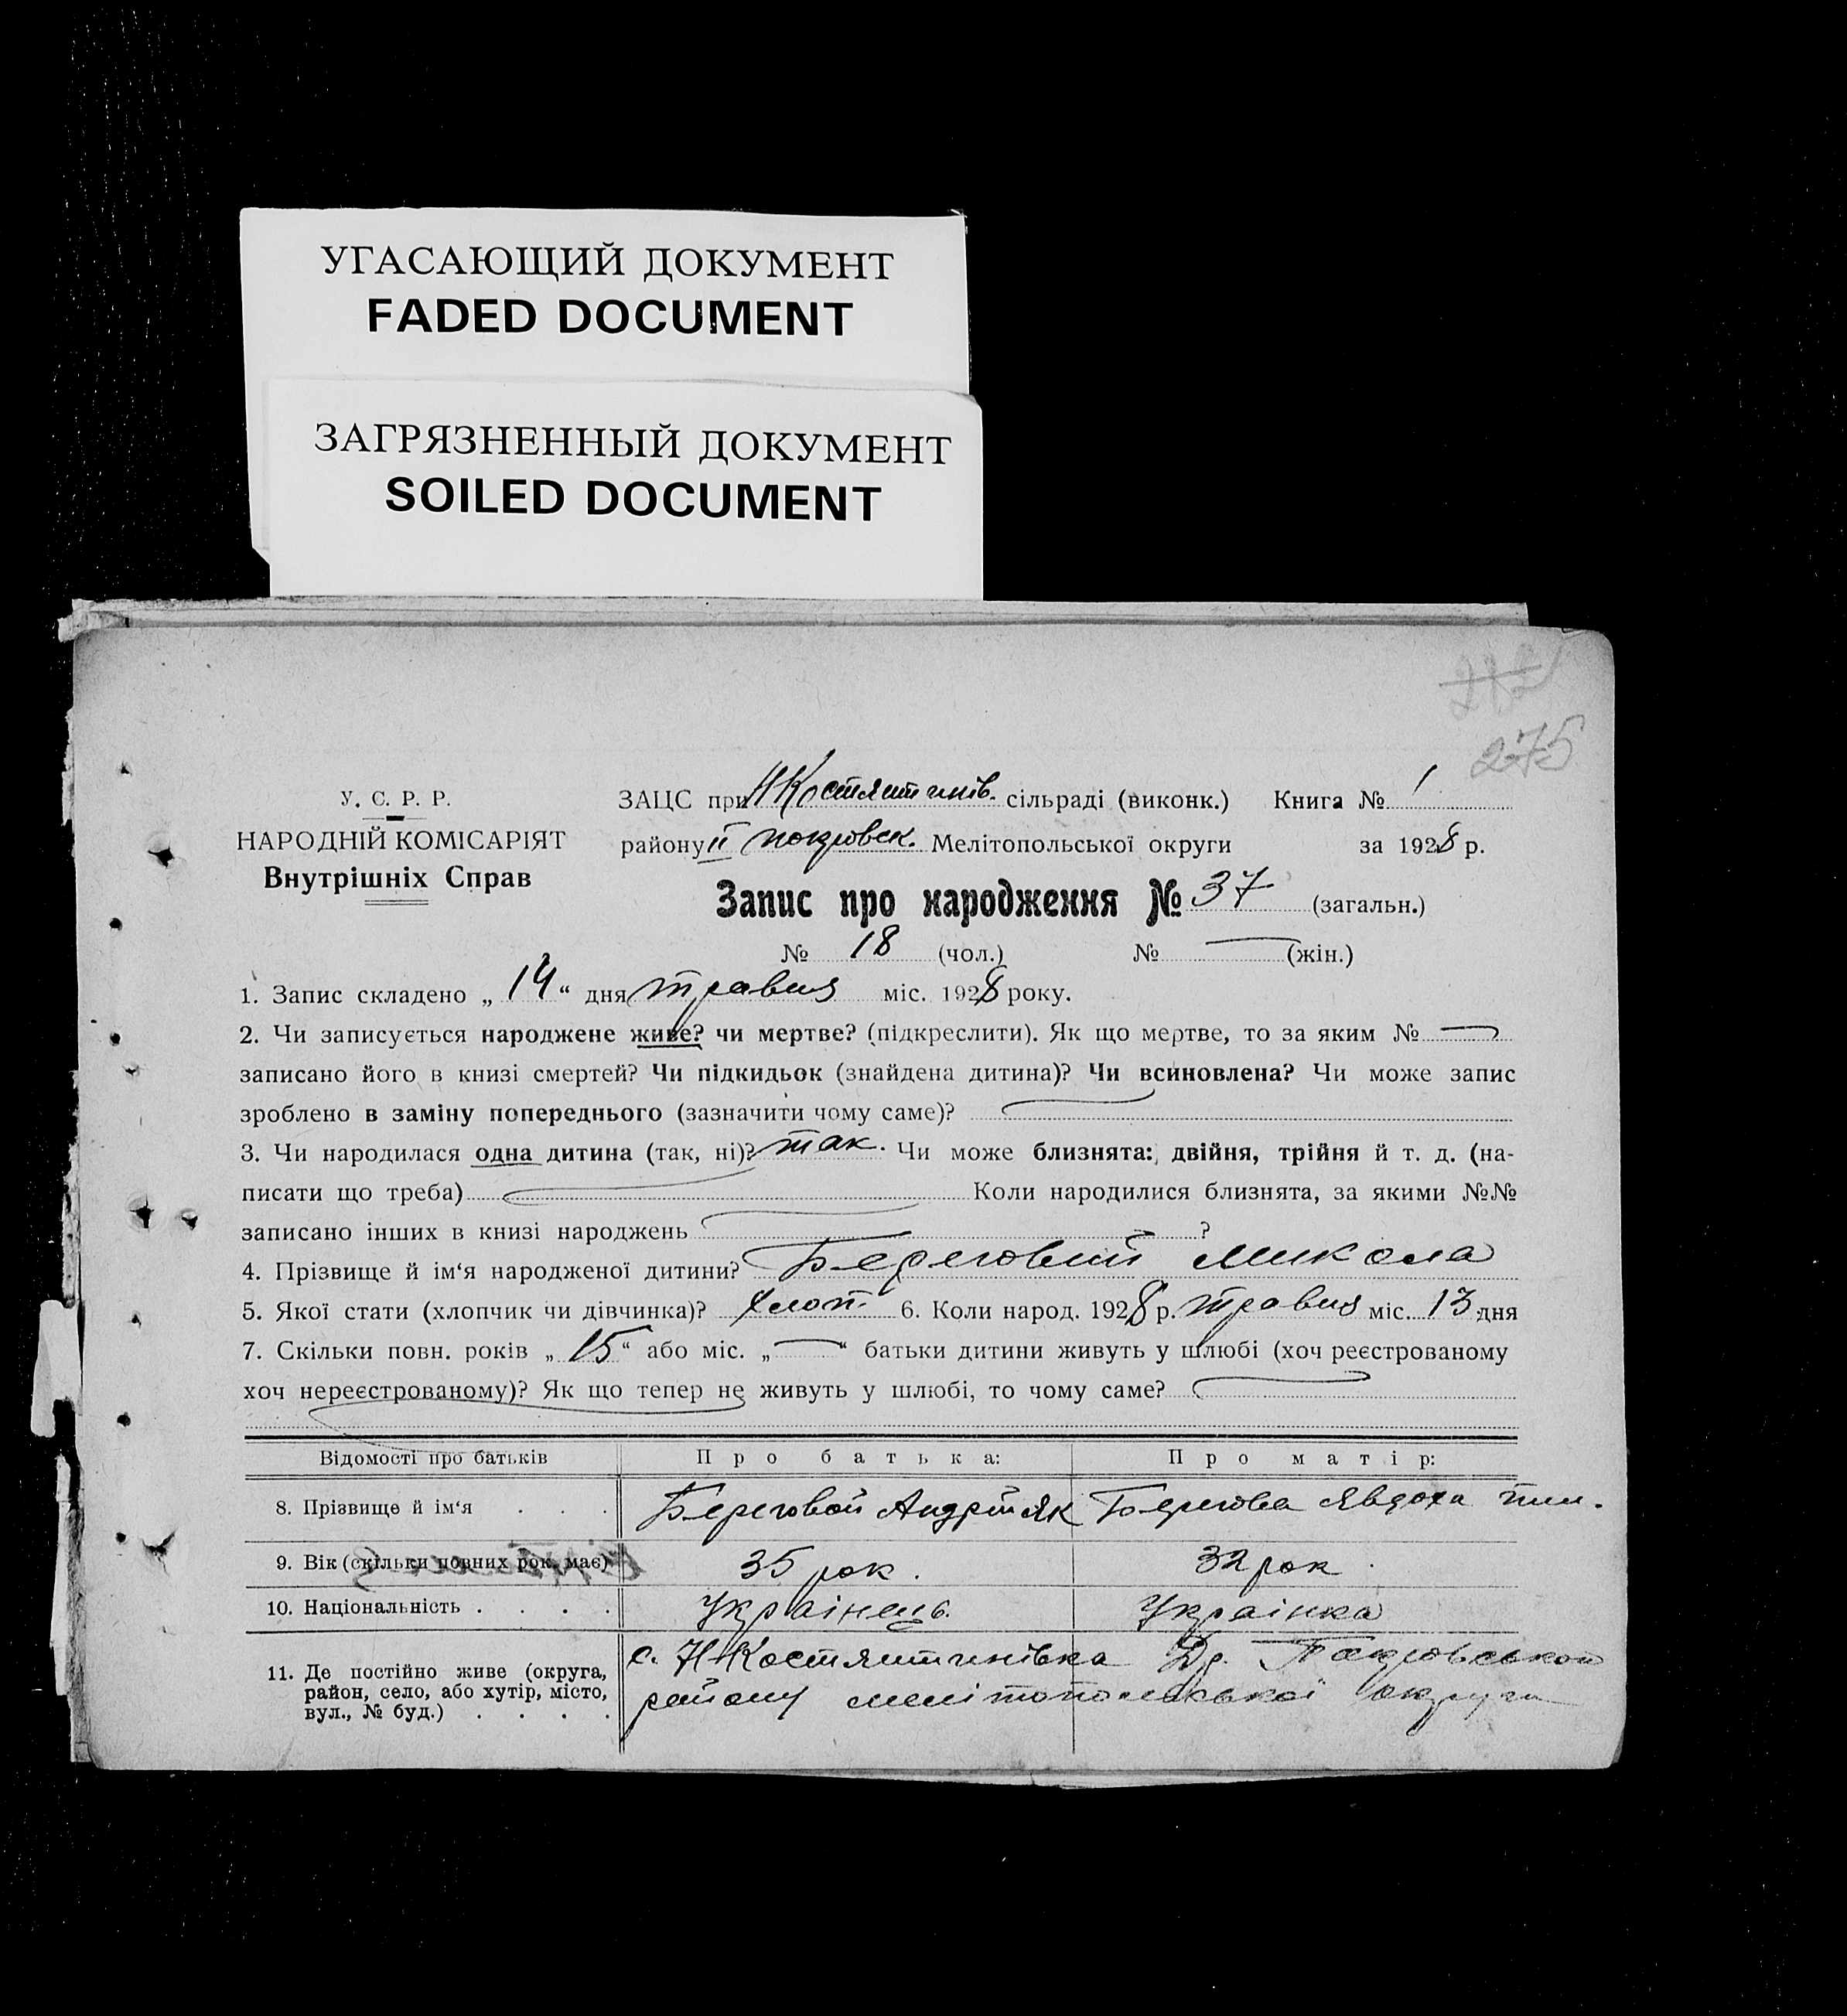 УГАСАЮЩИЙ ДОКУМЕНТ
FADED DOCUMENT
ЗАГРЯЗНЕННЫЙ ДОКУМЕНТ
SOILED DOCUMENT
275
У. С. Р. Р.
НАРОДНІЙ КОМІСАРІЯТ
Внутрішніх Справ
ЗАЦС при Н Костянтинів. сільраді (виконк.) Книга № 1
району II покровск. Мелітопольської округи за 1928 р.
Запис про народження № 37 (загальн.)
№ 18 (чол.) № — (жін.)
1. Запис складено „ 14 “ дня травня міс. 1928 року.
2. Чи записується народжене живе? чи мертве? (підкреслити). Як що мертве, то за яким № —
записано його в книзі смертей? Чи підкидьок (знайдена дитина)? Чи всиновлена? Чи може запис
зроблено в заміну попереднього (зазначити чому саме)?
3. Чи народилася одна дитина (так, ні)? так. Чи може близнята: двійня, трійня й т. д. (на-
писати що треба) Коли народилися близнята, за якими №№
записано інших в книзі народжень ?
4. Прізвище й ім‘я народженої дитини? Береговий Микола
5. Якої стати (хлопчик чи дівчинка)? хлоп. 6. Коли народ. 1928 р. травня міс. 13 дня
7. Скільки повн. років „ 15 “ або міс. „ — “ батьки дитини живуть у шлюбі (хоч реєстрованому
хоч нереєстрованому)? Як що тепер не живуть у шлюбі, то чому саме?
Відомості про батьків Про батька: Про матір:
8. Прізвище й ім‘я . . . Береговой Андрій Як Берегова Явдоха
9. Вік (скільки повних рок. має) 35 рок. 32 рок
10. Національність . . . . Українець. Українка
11. Де постійно живе (округа, район, село, або хутір, місто, вул., № буд.) . . . . с. Н-Костянтинівка Др. Покровськой
району мелітопольської округи